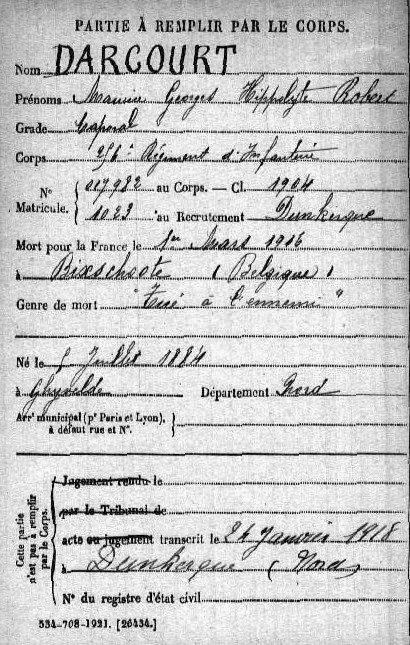 PARTIE À REMPLIR PAR LE CORPS.
Nom DARCOURT
Prénoms Maurice Georges Hippolyte Robert
Grade Caporal
Corps Régiment d'Infanterie
N° Matricule. { 017982 au Corps. — Cl. 1904
1023 au Recrutement Dunkerque
Mort pour la France le 1er Mars 1916
à Bixschoote (Belgique)
Genre de mort "Tué à l'ennemi"
Né le Juillet 1884
à Ghyvelde Département Nord
Arrt municipal (pr Paris et Lyon),
à défaut rue et N°.
Cette partie n'est pas à remplir par le Corps.
Jugement rendu le
par le Tribunal de
acte ou jugement transcrit le 24 Janvier 1918
à Dunkerque (Nord)
N° du registre d'état civil
534-708-1921. [26434.]